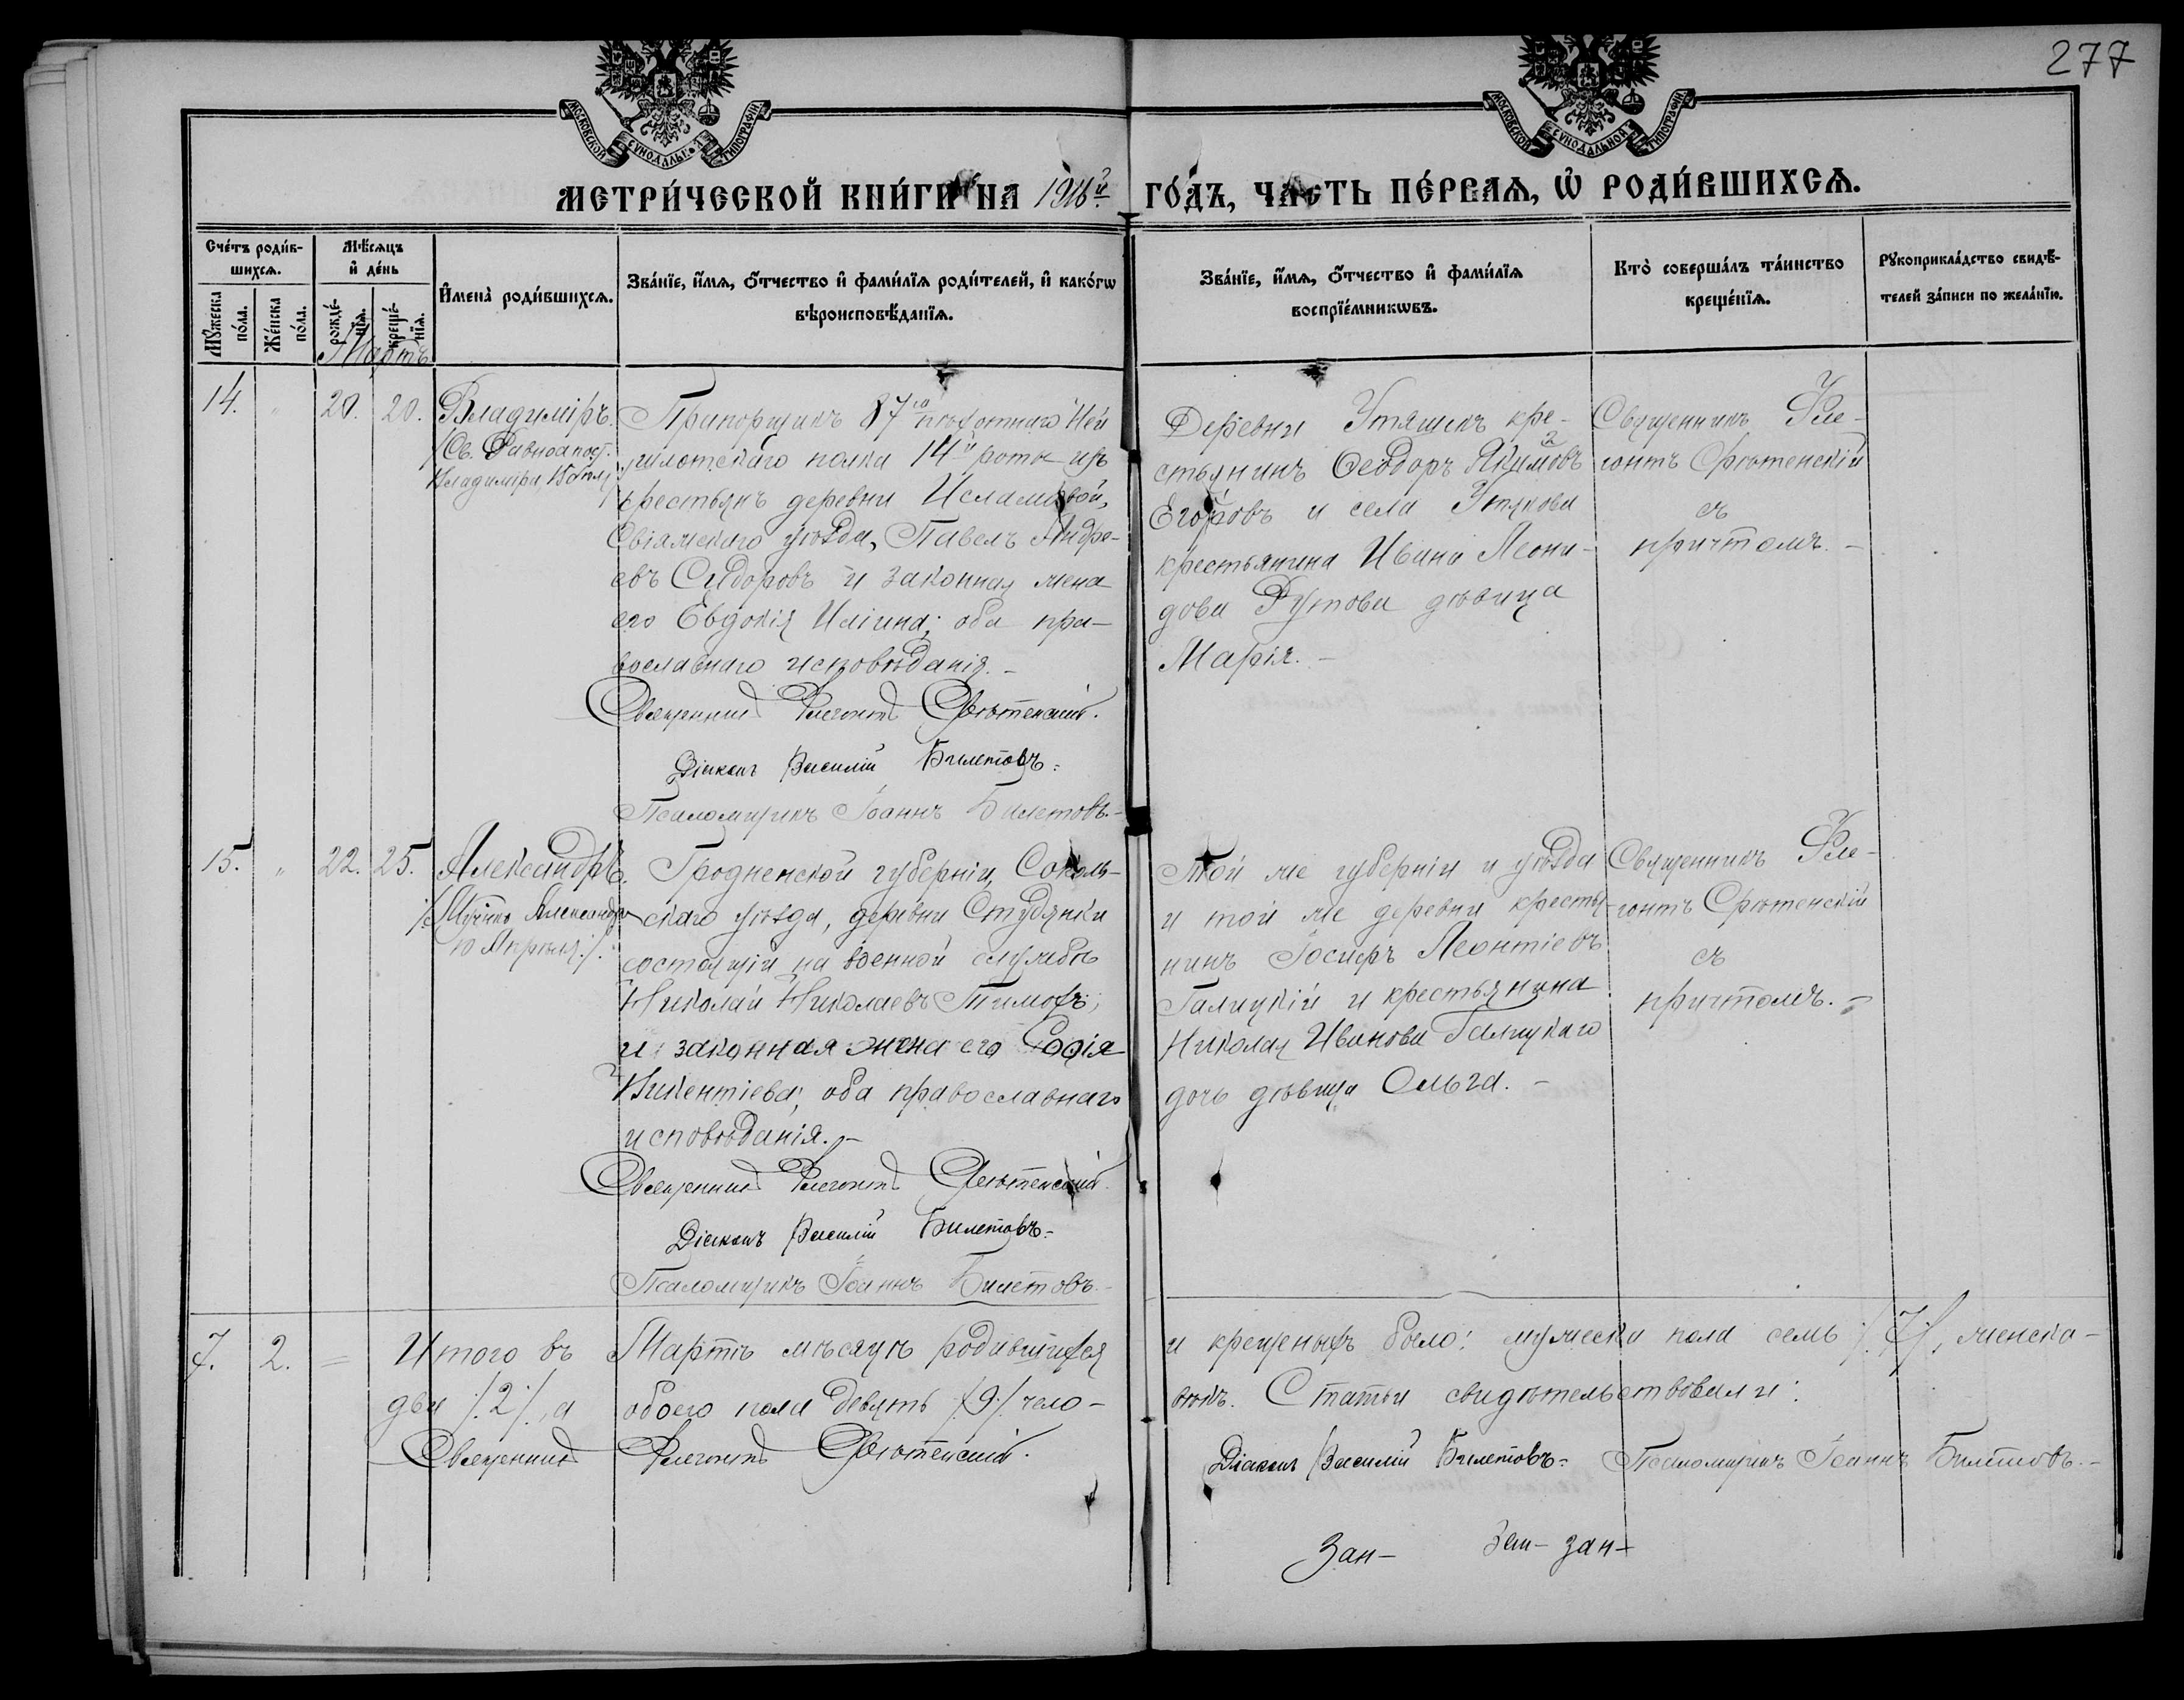 277
МОСКОВСКОЙ СѴНОДАЛЬНОЙ ТИПОГРАФІИ
МОСКОВСКОЙ СѴНОДАЛЬНОЙ ТИПОГРАФІИ
МЕТРИ́ЧЕСКОЙ КНИ́ГИ НА 1916й ГО́ДЪ, ЧА́СТЬ ПЕ́РВАѦ, Ѽ РОДИ́ВШИХСѦ.
Сче́тъ роди́в-
шихсѧ.
Мꙋ́жеска по́ла.
Же́нска по́ла.
Мѣ́сѧцъ
и҆ де́нь
рожде́-
нїѧ.
креще́-
нїѧ.
И҆мена̀ роди́вшихсѧ.
Зва́нїе, и҆́мѧ, ѻ҆́тчество и҆ фами́лїѧ роди́телей, и҆ како́гѡ
вѣроисповѣ́данїѧ.
Зва́нїе, и҆́мѧ, ѻ҆́тчество и҆ фами́лїѧ
воспрїе́мникѡвъ.
Кто̀ соверша́лъ та́инство
креще́нїѧ.
Рꙋкоприкла́дство свидѣ́-
телей за́писи по жела́нїю.
Мартъ
14. " 20. 20. Владиміръ.
/Св. Равноапост.
Владиміра, 15 Іюля/
Прапорщикъ 87го пѣхотнаго Ней
шлотскаго полка 14й роты изъ
крестьянъ деревни Исламовой,
Свіяжскаго уѣзда, Павелъ Андре-
евъ Сидоровъ и законная жена
его Евдокія Иліина; оба пра-
вославнаго исповѣданія. –
Священникъ Флегонтъ Срѣтенскій.
Діаконъ Василій Билетовъ.
Псаломщикъ Іоаннъ Билетовъ. –
Деревни Утяшекъ кре-
стьянинъ Ѳеодоръ Якимовъ
Егоровъ и села Утякова
крестьянина Ивана Леони-
дова Рутова дѣвица
Марія. –
Священникъ Фле-
гонтъ Срѣтенскій
съ
причтомъ. –
15. " 22. 25. Александръ.
/:Мучен. Александра
10 Апрѣля:/.
Гродненской губерніи, Соколь-
скаго уѣзда, деревни Студянки
состоящій на военной службѣ
Николай Николаевъ Тимофъ;
и законная жена его Софія
Викентіева; оба православнаго
исповѣданія. –
Священникъ Флегонтъ Срѣтенскій.
Діаконъ Василій Билетовъ.
Псаломщикъ Іоаннъ Билетовъ. –
Той же губерніи и уѣзда
и той же деревни кресть-
нинъ Іосифъ Леонтіевъ
Галицкій и крестьянина
Николая Иванова Галицкаго
дочь дѣвица Ольга. –
Священникъ Фле-
гонтъ Срѣтенскій
съ
причтомъ. –
7. 2. = Итого въ Мартѣ мѣсяцѣ родившихся и крещеныхъ было: мужеска пола семь /.7./, женска –
два /.2./, а обоего пола девять /.9./ чело-
вѣкъ. Статьи свидѣтельствовали:
Священникъ Флегонтъ Срѣтенскій.
Діаконъ Василій Билетовъ. Псаломщикъ Іоаннъ Билетовъ. –